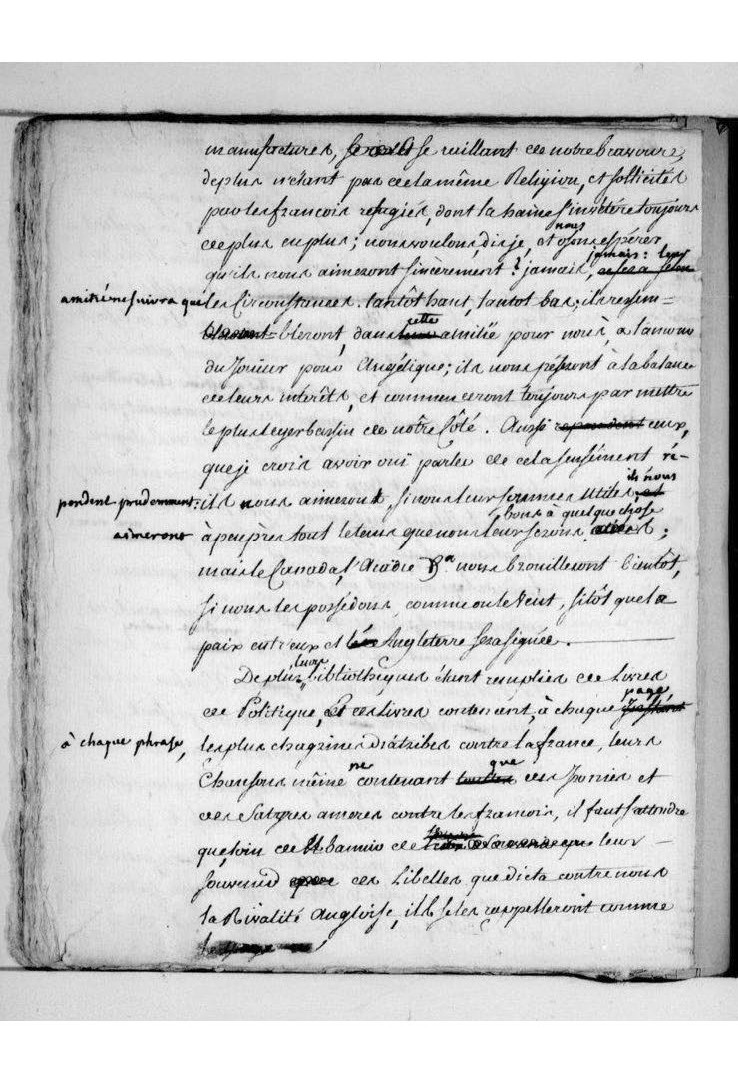 manufactures, se raillant de notre bravoure,
de plus n'étant pas de la même Religion, et sollicités
par les francois refugiés, dont la haine s'invétère toujours
de plus en plus; nous voulons, dis je, et nous osons espérer
qu'ils nous aimeront sincèrement? jamais, jamais: leur
amitié ne suivra que les Circonstances. tantôt haut, tantot bas; ils ressem=
=bleront, dans cette amitié pour nous, a l'amour
du Joueur pour Angélique; ils nous péseront à la balance
de leurs interêts, et commenceront toujours par mettre
le plus leger bassin de notre Côté. Aussi ceux,
que je crois avoir oui parler de cela sensément ré-
pondent prudemment: ils nous aimeront, si nous leur sommes utiles, ils nous
aimeront à peu près tout le tems que nous leur serons bons à quelque chose;
mais le Canada, l'Acadie &a nous brouilleront bientôt,
si nous les possédons, comme on le veut, sitôt que la
paix entr'eux et Angleterre sera signée.
De plus, leurs bibliothèques étant remplies de Livres
de Politique, et ces Livres contenant, à chaque page,
à chaque phrase, les plus chagrines diatribes contre la france, leurs
Chansons même ne contenant que des Ironies et
des Satyres ameres contre les francois, il faut s'attendre
que, loin de bannir de leur
souvenir ces Libelles que dicta contre nous
la Rivalité Angloise, ils se les rappelleront comme